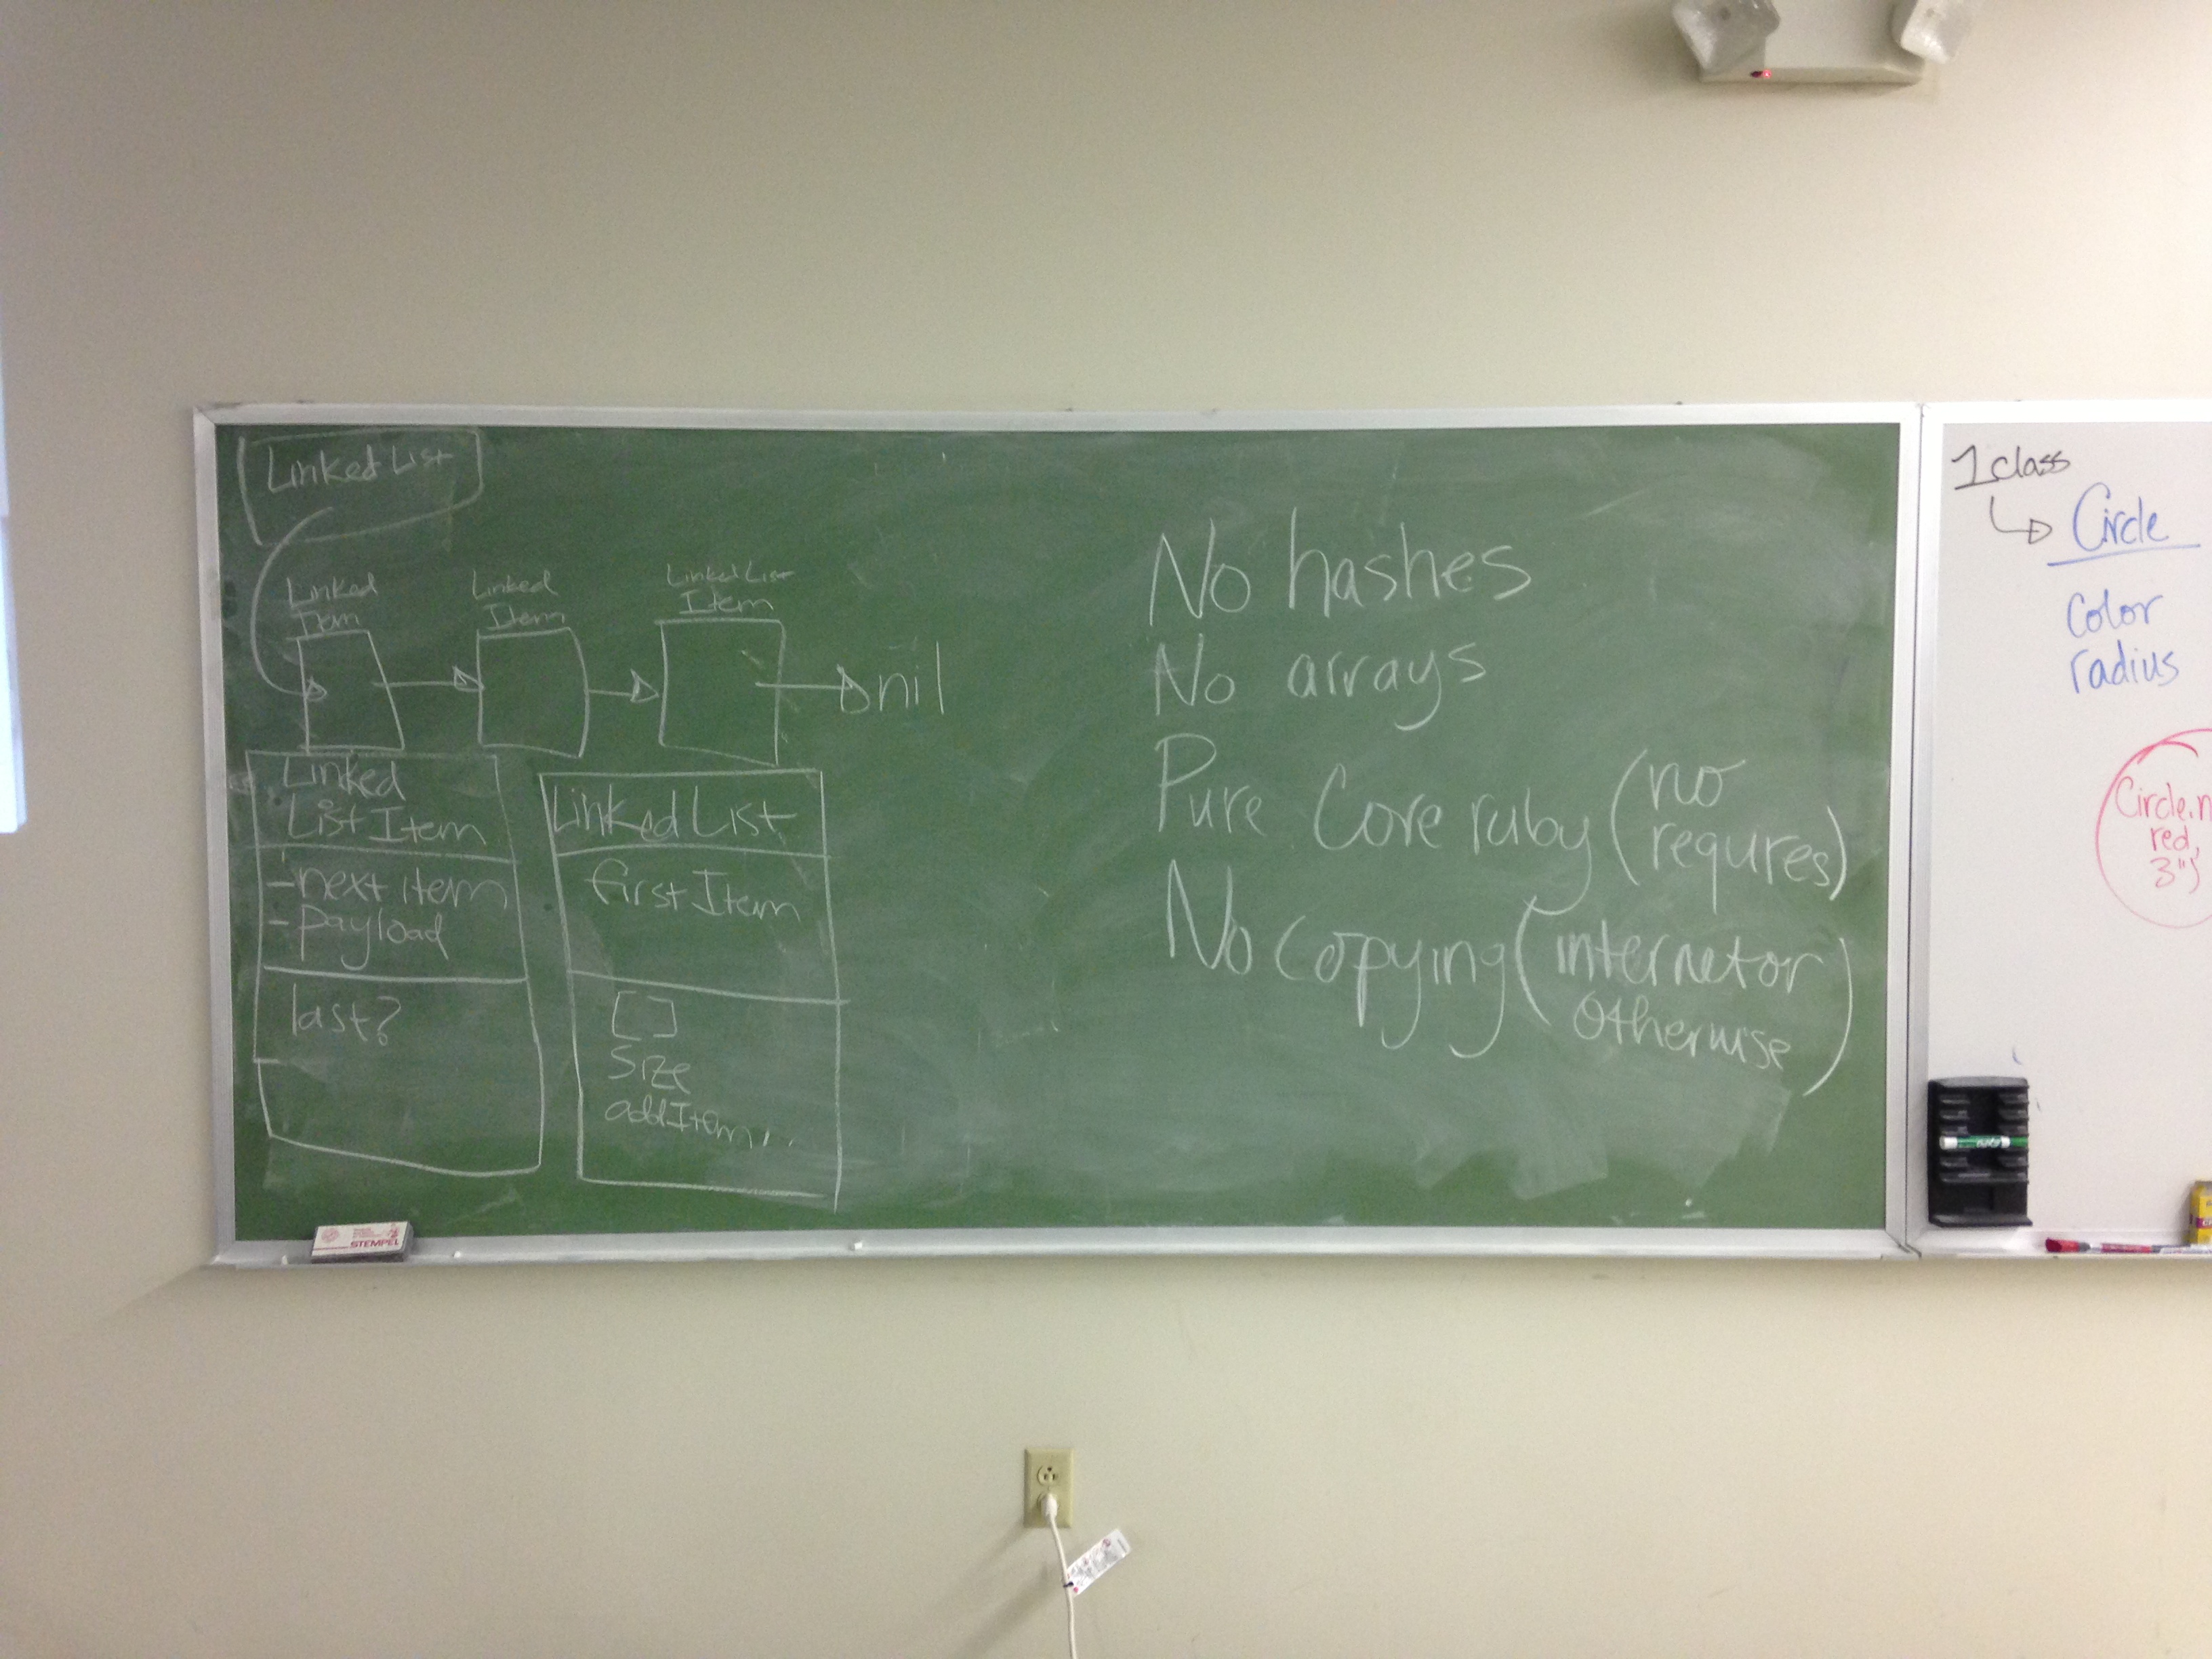 Linked List
Linked
Item
Linked
Item
Linked List
Item
nil
Linked
List Item
- next item
- payload
last?
Linked List
first Item
[]
Size
add Item...
No hashes
No arrays
Pure Core ruby (no
requres)
No Copying (internet or
otherwise)
STEMPEL
1 class
Circle
Color
radius
Circle.n
red,
3")